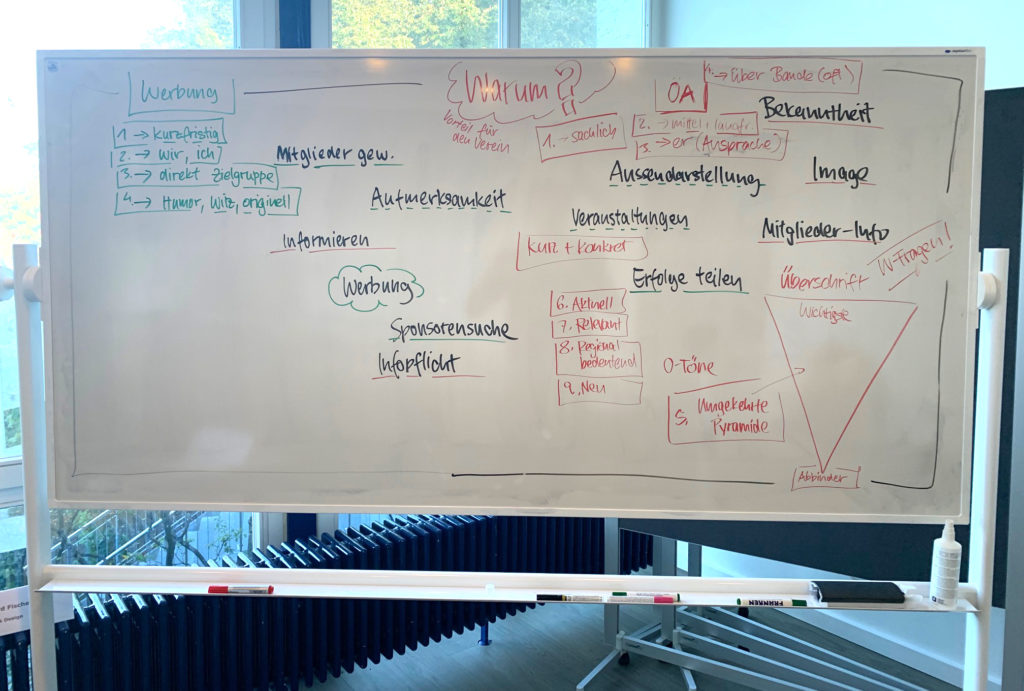 Werbung
1. → kurzfristig
2. → wir, ich
3. → direkt Zielgruppe
4. → Humor, Witz, originell
Mitglieder gew.
Aufmerksamkeit
Informieren
Werbung
Sponsorensuche
Infopflicht
Warum?!
Vorteil für
den Verein
ÖA
4. → über Bande (oft)
1. → sachlich
2. → mittel, langfr.
3. → er (Aussprache)
Bekanntheit
Aussendarstellung
Image
Veranstaltungen
Mitglieder-Info
Kurz + Konkret
Erfolge teilen
6. Aktuell
7. Relevant
8. Regional
bedeutend
9. Neu
O-Töne
5. Umgekehrte
Pyramide
Überschrift
W-Fragen!
Wichtigste
Abbinder
rd Fische
& Design
FRANKEN